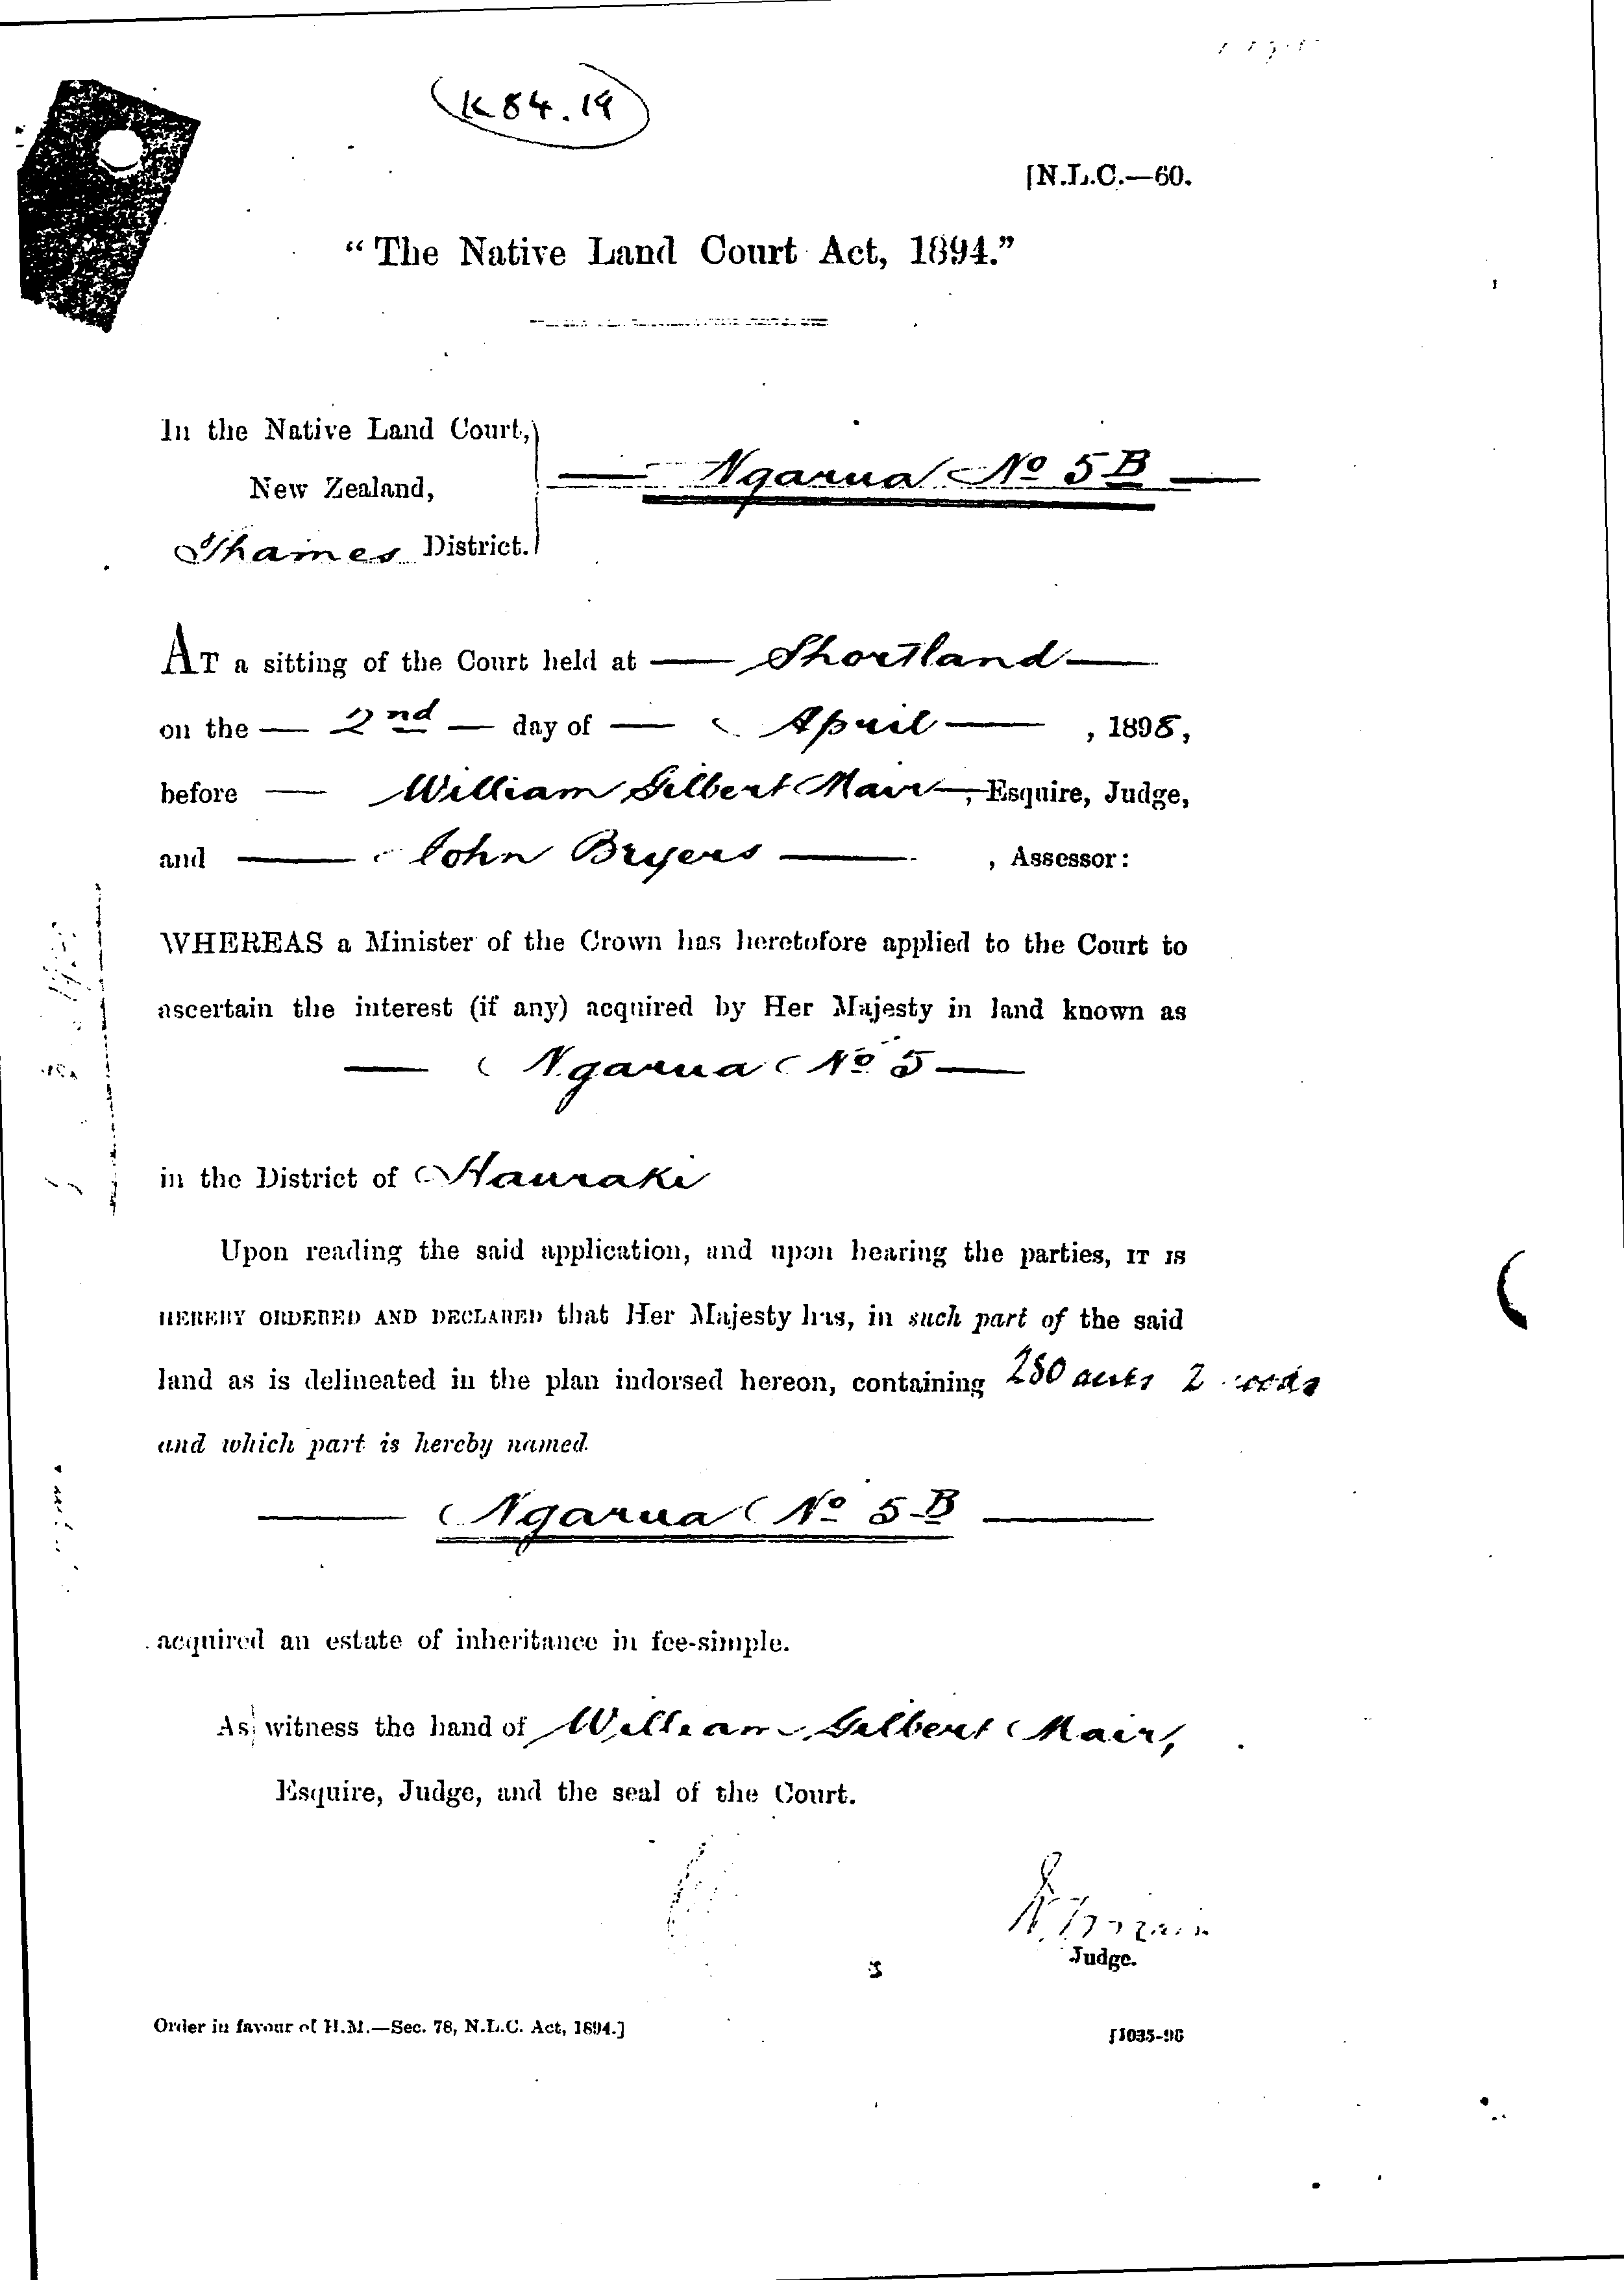 K84.19
[N.L.C.—60.
“The Native Land Court Act, 1894.”
In the Native Land Court,
New Zealand,
Thames District.
Ngarua No 5B
AT a sitting of the Court held at — Shortland —
on the — 2nd — day of — April — , 1898,
before — William Gilbert Mair —, Esquire, Judge,
and — John Bryers — , Assessor:
WHEREAS a Minister of the Crown has heretofore applied to the Court to
ascertain the interest (if any) acquired by Her Majesty in land known as
— Ngarua No 5 —
in the District of Hauraki
Upon reading the said application, and upon hearing the parties, IT IS
HEREBY ORDERED AND DECLARED that Her Majesty has, in such part of the said
land as is delineated in the plan indorsed hereon, containing 280 acres 2 roods
and which part is hereby named
— Ngarua No 5B —
acquired an estate of inheritance in fee-simple.
As witness the hand of William Gilbert Mair,
Esquire, Judge, and the seal of the Court.
Judge.
Order in favour of H.M.—Sec. 78, N.L.C. Act, 1894.]
[1035-98